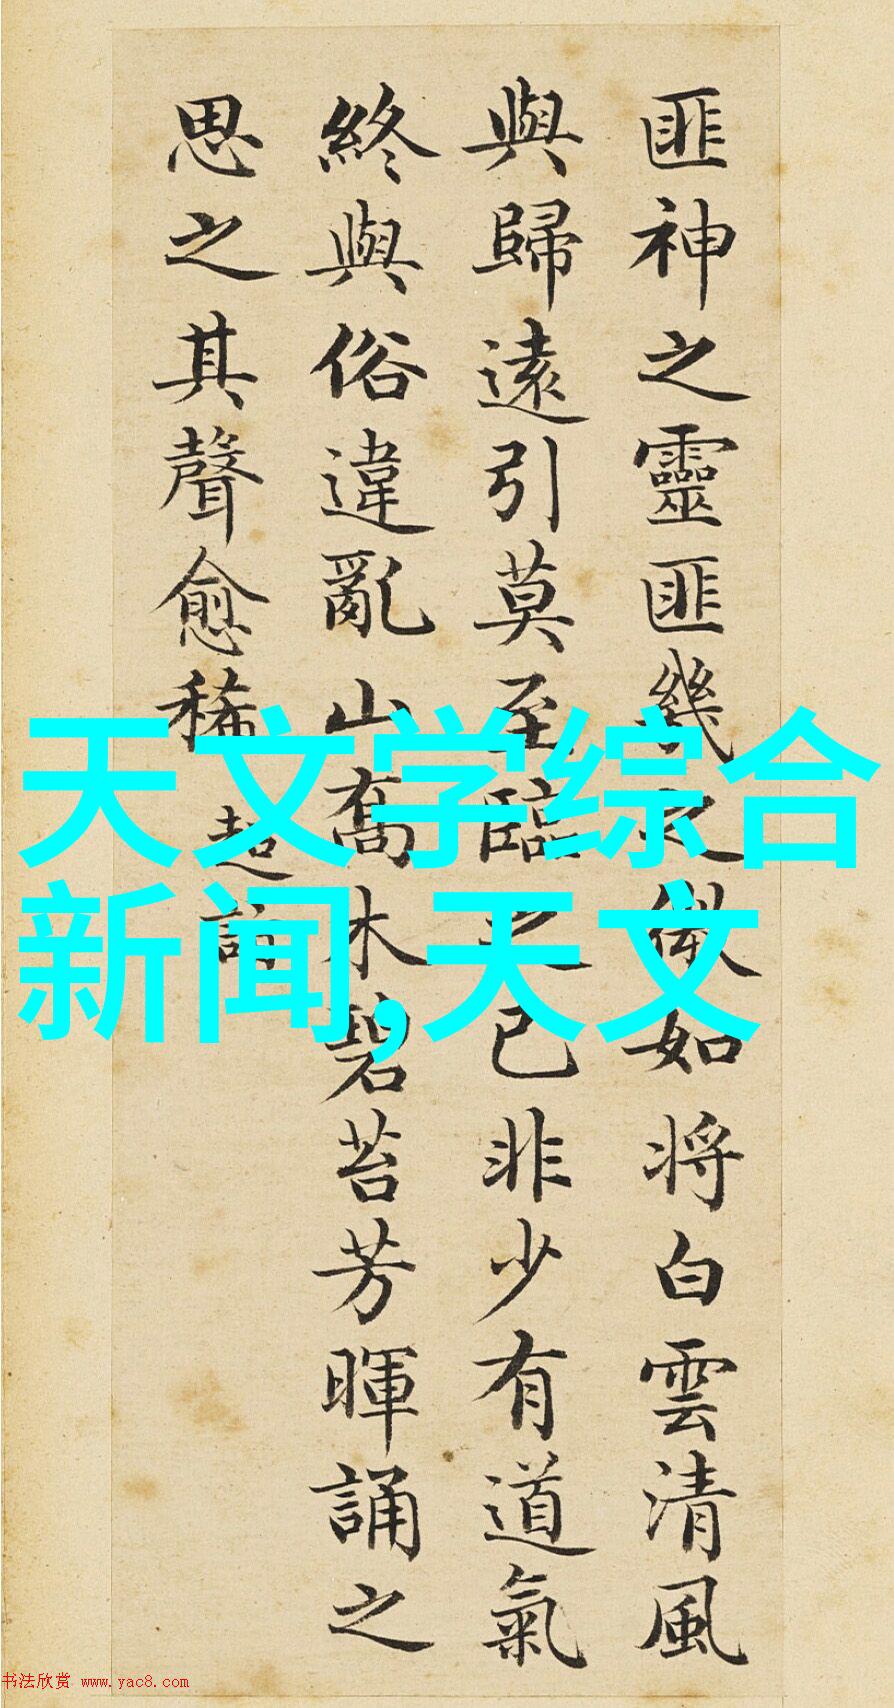 匪神之靈匪幾之微如将白雲清風
與歸遠引莫至臨之已非少有道氣
終與俗違亂山喬木碧苔芳暉誦之
思之其聲愈稀 超詣
天文学综合
新闻,天文
书法欣赏 www.yac8.com